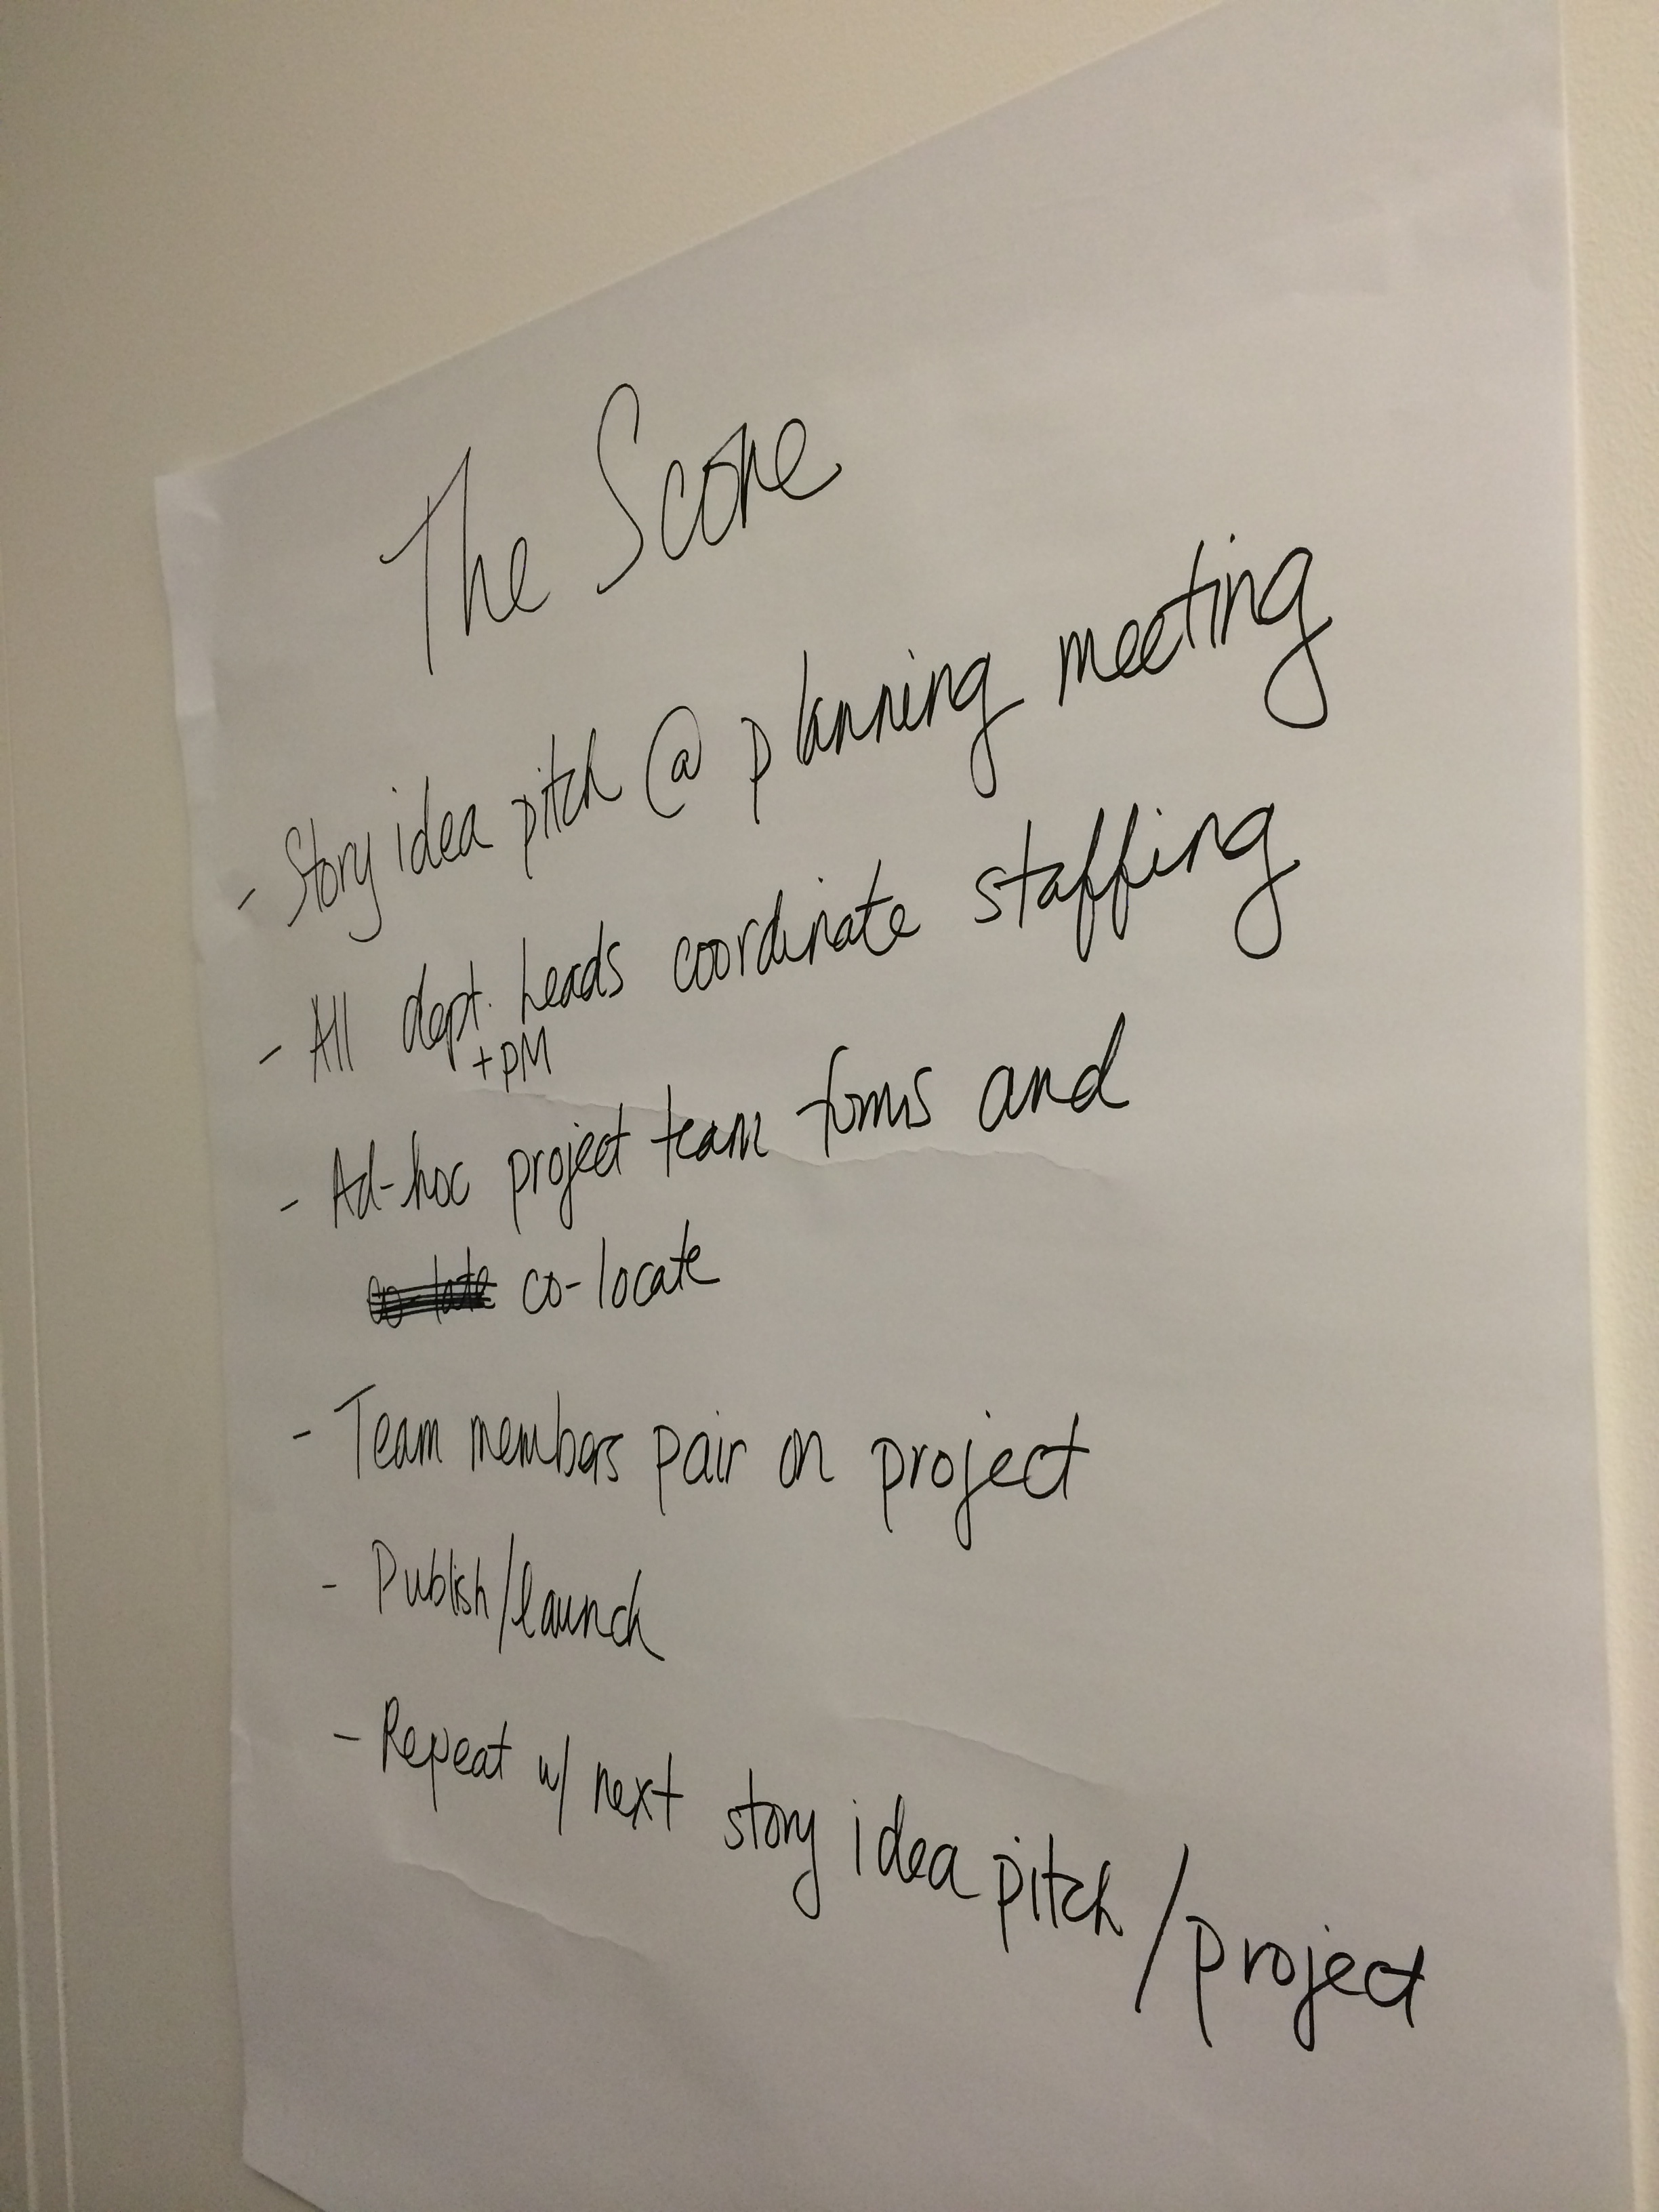 The Score
- Story idea pitch @ planning meeting
- All dept. heads coordinate staffing
+ PM
- Ad-hoc project team forms and
co-locate
- Team members pair on project
- Publish/launch
- Repeat w/ next story idea pitch/project